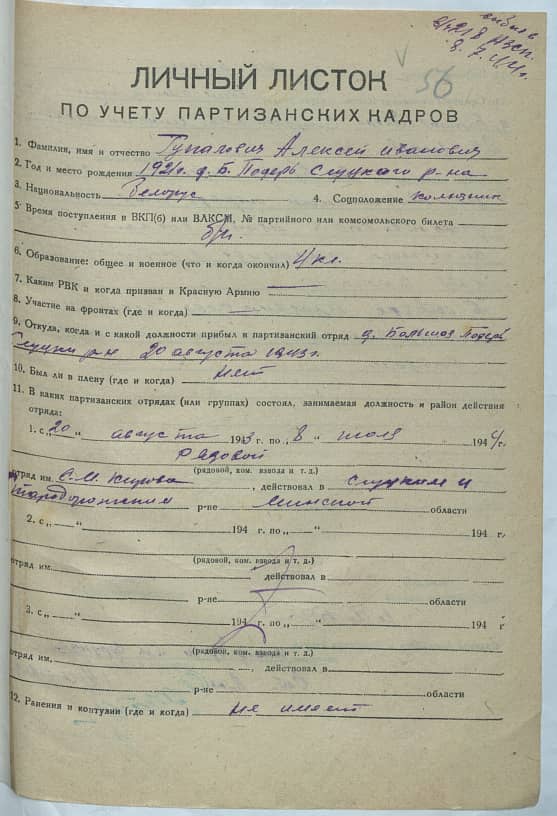 выбыл в
8.7.44г.
56
ЛИЧНЫЙ ЛИСТОК
ПО УЧЕТУ ПАРТИЗАНСКИХ КАДРОВ
1. Фамилия, имя и отчество Тупалович Алексей Иванович
2. Год и место рождения 1921г. д. Б. Подерь Слуцкого р-на
3. Национальность белорус 4. Соцположение колхозник
5. Время поступления в ВКП(б) или ВЛКСМ, № партийного или комсомольского билета
б/п.
6. Образование: общее и военное (что и когда окончил) 4 кл.
7. Каким РВК и когда призван в Красную Армию —
8. Участие на фронтах (где и когда) —
9. Откуда, когда и с какой должности прибыл в партизанский отряд д. Большая Подерь
Слуцк р-н 20 августа 1943г.
10. Был ли в плену (где и когда) нет
11. В каких партизанских отрядах (или группах) состоял, занимаемая должность и район действия
отряда:
1. с „20“ августа 1943 г. по „8“ июля 1944 г.
рядовой
(рядовой, ком. взвода и т. д.)
отряд им. С.М. Кирова, действовал в Слуцком и
Стародорожском р-не Минской области
2. с „ “ 194 г. по „ “ 194 г.
(рядовой, ком. взвода и т. д.)
отряд им. действовал в
р-не области
3. с „ “ 194 г. по „ “ 194 г
(рядовой, ком. взвода и т. д.)
отряд им. , действовал в
р-не области
12. Ранения и контузии (где и когда) не имеет